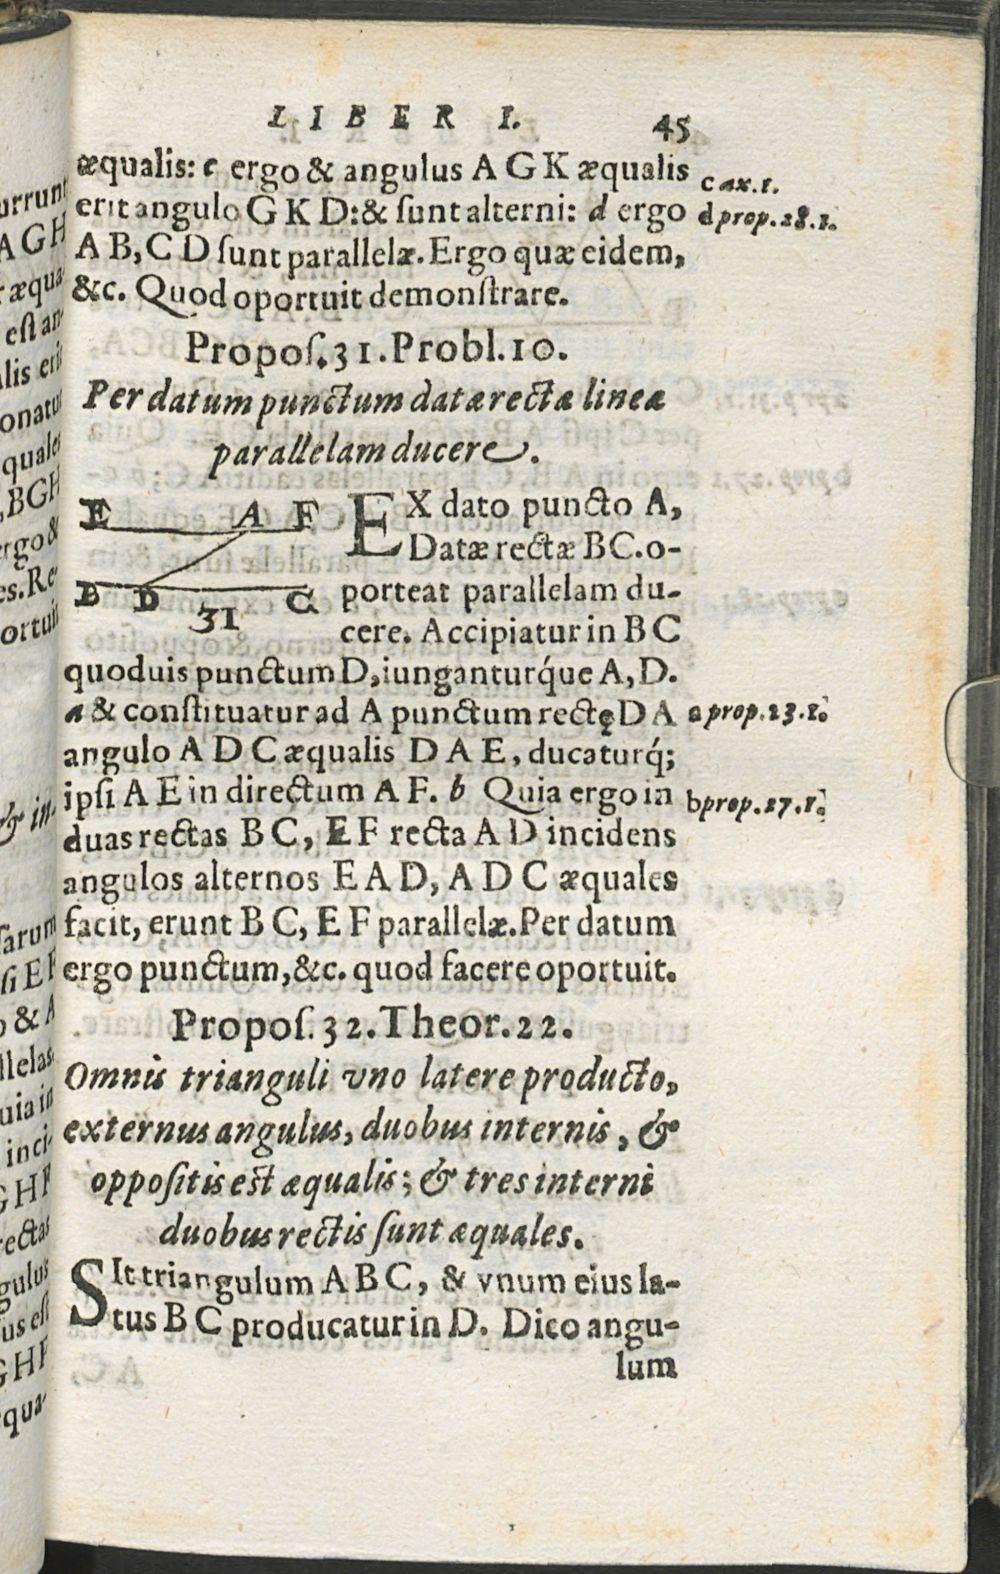 LIBER I. 45
æqualis: c ergo & angulus A G K æqualis
c ax.1.
erit angulo G K D: & ſunt alterni: d ergo
d prop.28.1.
A B, C D ſunt parallelæ. Ergo quæ eidem,
&c. Quod oportuit demonſtrare.
Propoſ. 31. Probl. 10.
Per datum punctum datæ rectæ lineæ
parallelam ducere.
E A F
B D C
31
EX dato puncto A,
Datæ rectæ BC. o-
porteat parallelam du-
cere. Accipiatur in B C
quoduis punctum D, iunganturq́ue A, D.
a & conſtituatur ad A punctum rectę D A
a prop.23.1.
angulo A D C æqualis D A E, ducaturq́;
ipſi A E in directum A F. b Quia ergo in
b prop.27.1.
duas rectas B C, E F recta A D incidens
angulos alternos E A D, A D C æquales
facit, erunt B C, E F parallelæ. Per datum
ergo punctum, &c. quod facere oportuit.
Propoſ. 32. Theor. 22.
Omnis trianguli vno latere producto,
externus angulus, duobus internis, &
oppoſitis est æqualis; & tres interni
duobus rectis ſunt æquales.
SIt triangulum A B C, & vnum eius la-
tus B C producatur in D. Dico angu-
lum